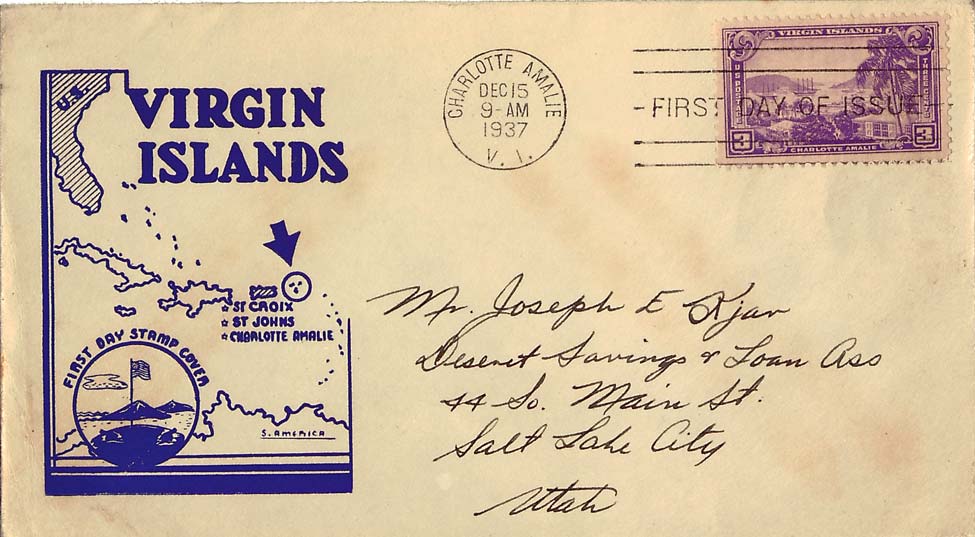 U.S.
VIRGIN
ISLANDS
ST CROIX
ST JOHNS
CHARLOTTE AMALIE
FIRST DAY STAMP COVER
S. AMERICA
CHARLOTTE AMALIE
DEC 15
9-AM
1937
V. I.
FIRST DAY OF ISSUE
VIRGIN ISLANDS
U S POSTAGE
THREE CENTS
3 3
CHARLOTTE AMALIE
Mr. Joseph E Kjar
Deseret Savings & Loan Ass
44 So. Main St.
Salt Lake City
Utah